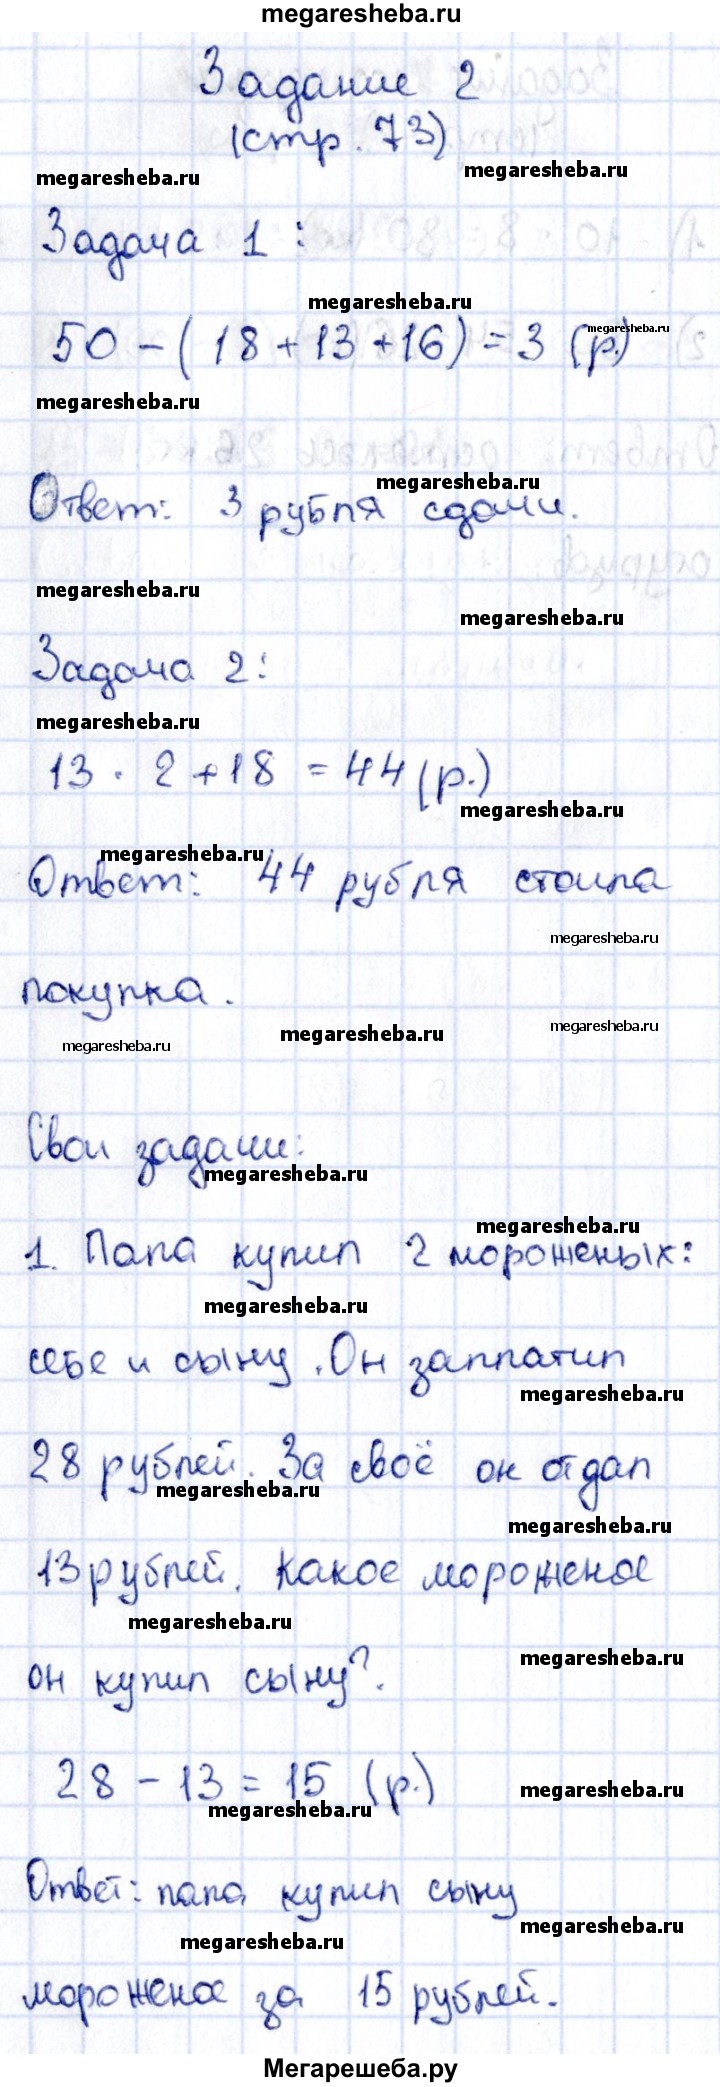 megaresheba.ru
Задание 2
(стр. 73)
megaresheba.ru
megaresheba.ru
Задача 1:
megaresheba.ru
megaresheba.ru
50 - (18 + 13 + 16) = 3 (р.)
megaresheba.ru
megaresheba.ru
Ответ: 3 рубля сдачи.
megaresheba.ru
megaresheba.ru
Задача 2:
megaresheba.ru
13 · 2 + 18 = 44 (р.)
megaresheba.ru
megaresheba.ru
Ответ: 44 рубля стоила
megaresheba.ru
покупка.
megaresheba.ru
megaresheba.ru
megaresheba.ru
Свои задачи:
megaresheba.ru
megaresheba.ru
1. Папа купил 2 мороженых:
megaresheba.ru
себе и сыну. Он заплатил
megaresheba.ru
28 рублей. За своё он отдал
megaresheba.ru
megaresheba.ru
13 рублей. Какое мороженое
megaresheba.ru
megaresheba.ru
он купил сыну?.
28 - 13 = 15 (р.)
megaresheba.ru
megaresheba.ru
Ответ: папа купил сыну
megaresheba.ru
megaresheba.ru
мороженое за 15 рублей.
Мегарешеба.ру